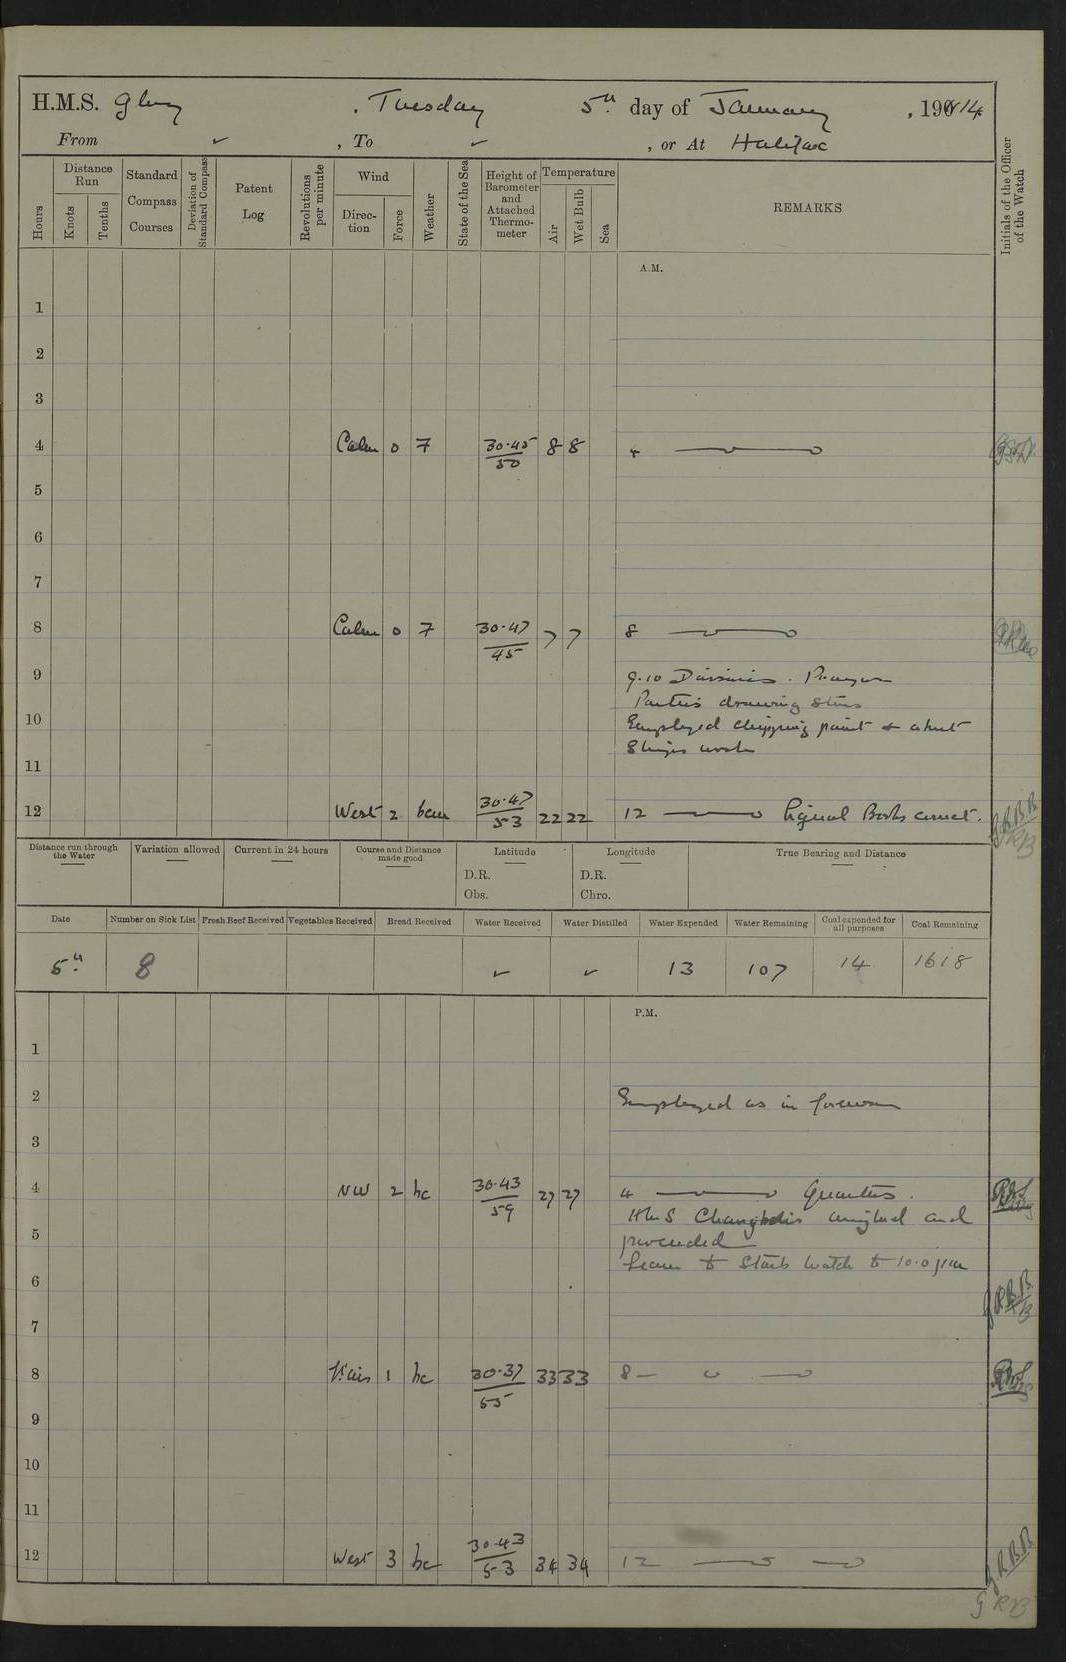 H.M.S. Glory , Tuesday 5th day of January , 1914
From ✓ , To ✓ , or At Halifax
Hours
Distance Run
Knots
Tenths
Standard Compass Courses
Deviation of Standard Compass
Patent Log
Revolutions per minute
Wind
Direction
Force
Weather
State of the Sea
Height of Barometer and Attached Thermometer
Temperature
Air
Wet Bulb
Sea
REMARKS
Initials of the Officer of the Watch
A.M.
1
2
3
4 Calm 0 7 30.45 8 8 4
50
5
6
7
8 Calm 0 7 30.47 7 7 8
45
9 9.10 Divisions. Prayers
Parties drawing stores
10 Employed chipping paint &
11
12 West 2 bcm 30.47 22 22 12 Signal Books correct.
53
Distance run through the Water
Variation allowed
Current in 24 hours
Course and Distance made good
Latitude
D.R.
Obs.
Longitude
D.R.
Chro.
True Bearing and Distance
Date Number on Sick List Fresh Beef Received Vegetables Received Bread Received Water Received Water Distilled Water Expended Water Remaining Coal expended for all purposes Coal Remaining
5th 8 ✓ ✓ 13 107 14 1618
P.M.
1
2 Employed as in forenoon
3
4 NW 2 bc 30.43 27 27 4 Quarters.
59
HMS Charybdis arrived and
5 proceeded
Leave to Starb Watch to 10.0 pm
6
7
8 1 bc 30.37 33 33 8
55
9
10
11
12 West 3 bc 30.43 34 34 12
53
GRB